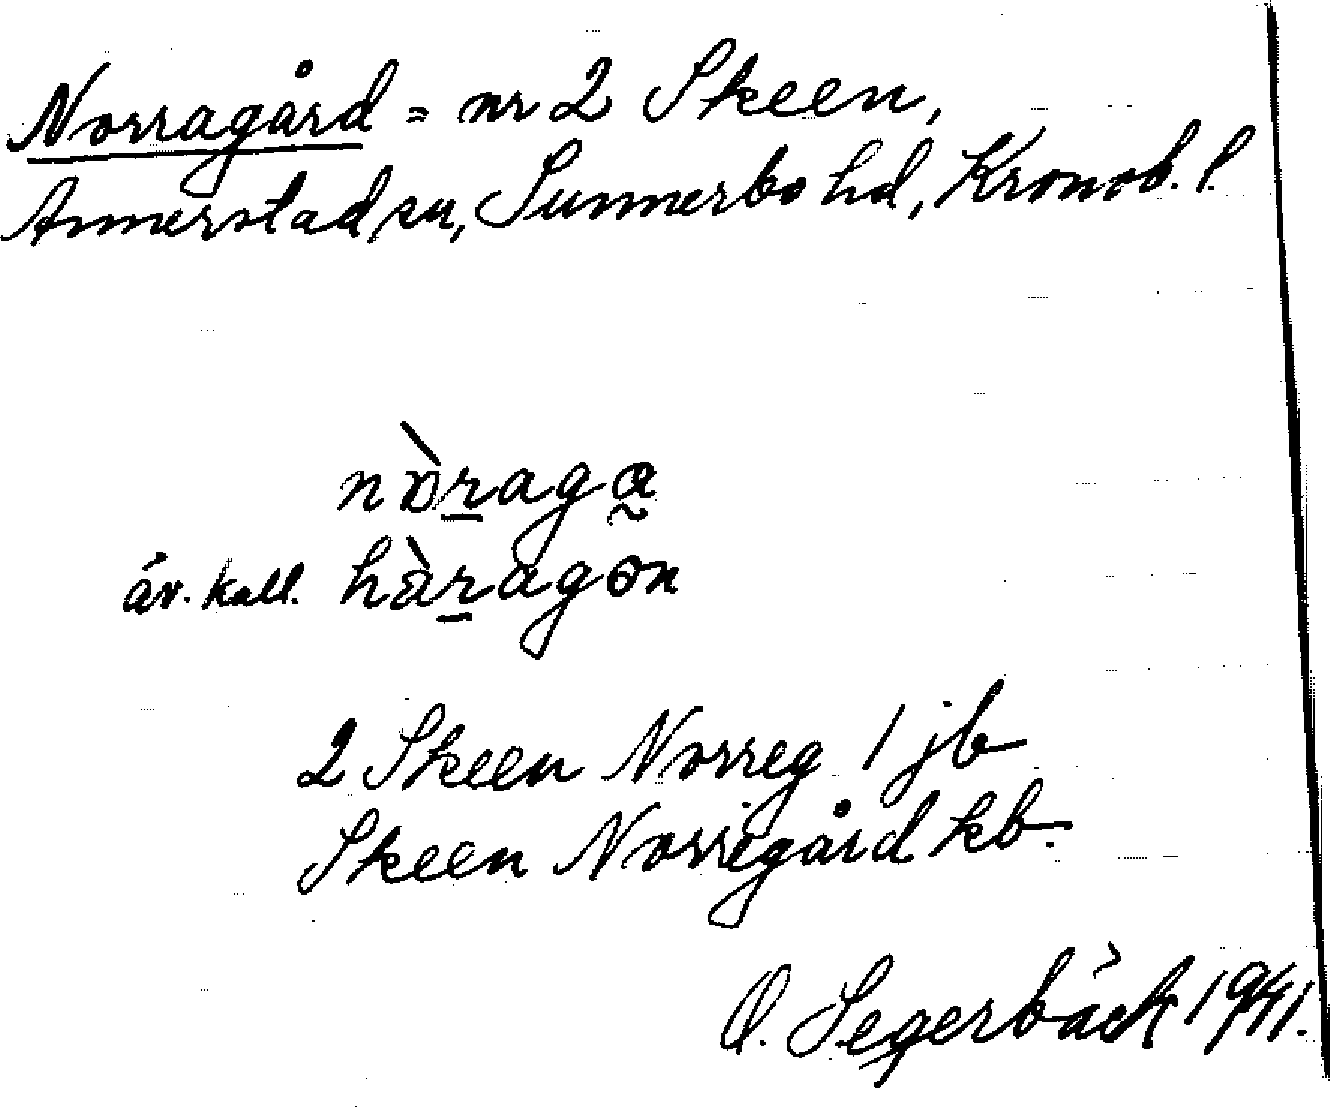 Norragård = nr 2 Skeen,
Annerstad sn, Sunnerbo hd, Kronob. l.
nòraga
äv. kall. hàragən
2 Skeen Norreg 1 jb
Skeen Norregård kb.
O. Segerbäck 1941.